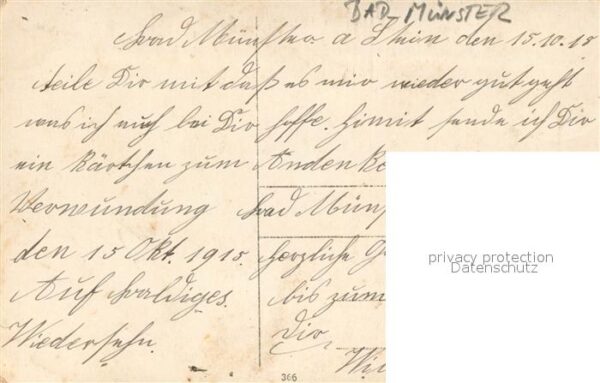 BAD MÜNSTER
Bad Münster a Stein den 15.10.15
teile Dir mit daß es mir wieder gut geht
was ich auch bei Dir hoffe. Himit sende ich Dir
ein Kärtchen zum Andenke
Verwundung Bad Müns
den 15 Okt. 1915. herzliche G
Auf baldiges bis zum
Wiedersehn. Dir
Wie
366
privacy protection
Datenschutz